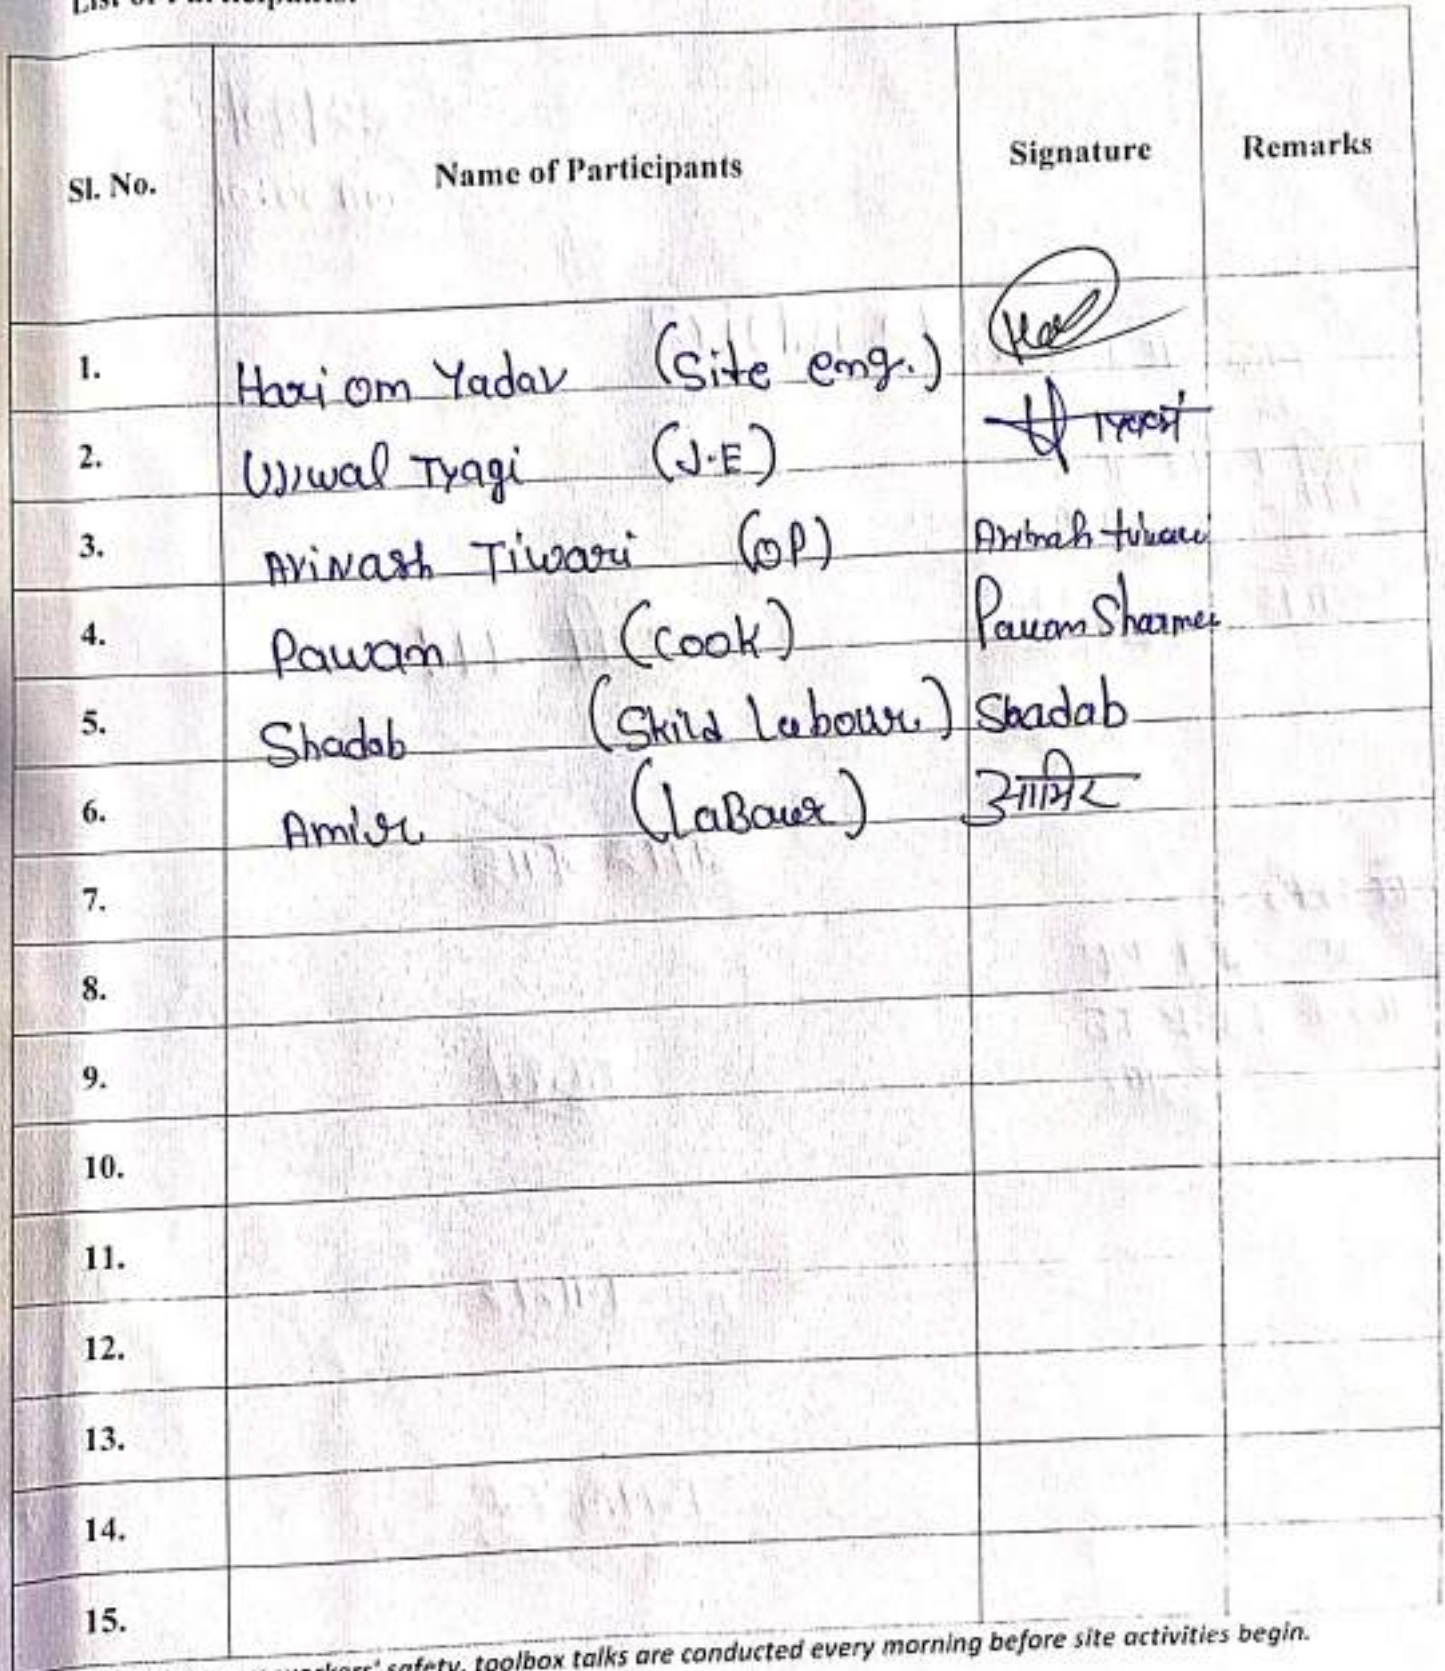 List of Participants:
Sl. No. Name of Participants Signature Remarks
1. Hari om Yadav (Site eng.)
2. Ujjwal Tyagi (J.E)
3. Avinash Tiwari (OP) Avinash tiwari
4. Pawan (Cook) Pawan Sharma
5. Shadab (Skild Labour) Shadab
6. Amir (LaBour) आमिर
7.
8.
9.
10.
11.
12.
13.
14.
15.
workers' safety, toolbox talks are conducted every morning before site activities begin.